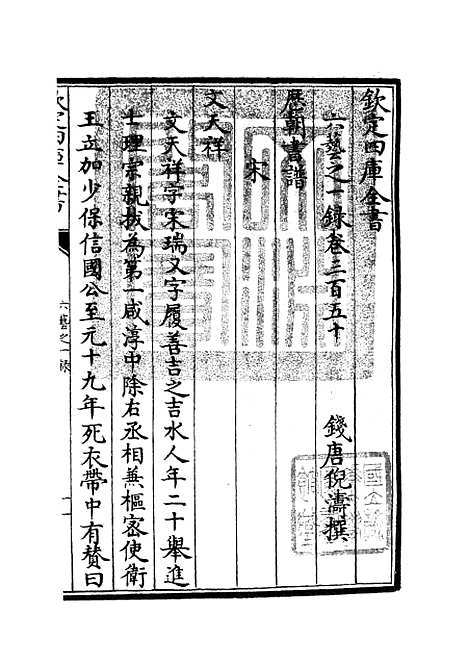 欽定四庫全書
六藝之一録卷三百五十
錢唐倪濤撰
歷朝書譜
宋
文天祥
文天祥字宋瑞又字履善吉之吉水人年二十舉進
士理宗親拔為第一咸淳中除右丞相兼樞密使衛
王立加少保信國公至元十九年死衣帶中有賛曰
欽定四庫全書
六藝之一録